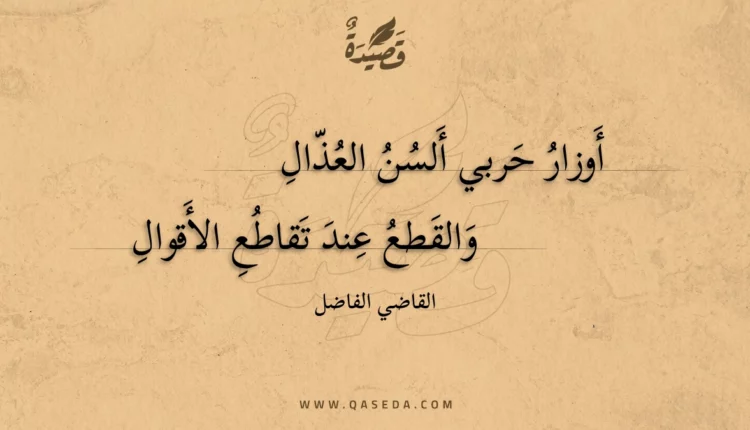 قَصِيدَةٌ
أَوزارُ حَربي أَلسُنُ العُذّالِ
وَالقَطعُ عِندَ تَقاطُعِ الأَقوالِ
القاضي الفاضل
WWW.QASEDA.COM